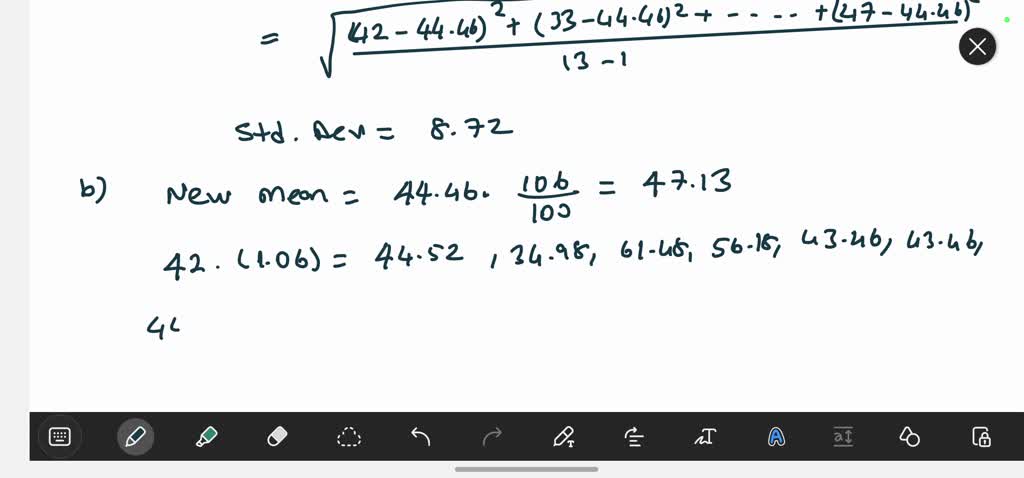 = √((42 - 44.46)² + (33 - 44.46)² + - - - .. + (47 - 44.46)² / 13 - 1)
Std. Dev = 8.72
b) New mean = 44.46 . 106/100 = 47.13
42 . (1.06) = 44.52 , 34.98, 61.48, 56.18, 43.46, 43.46,